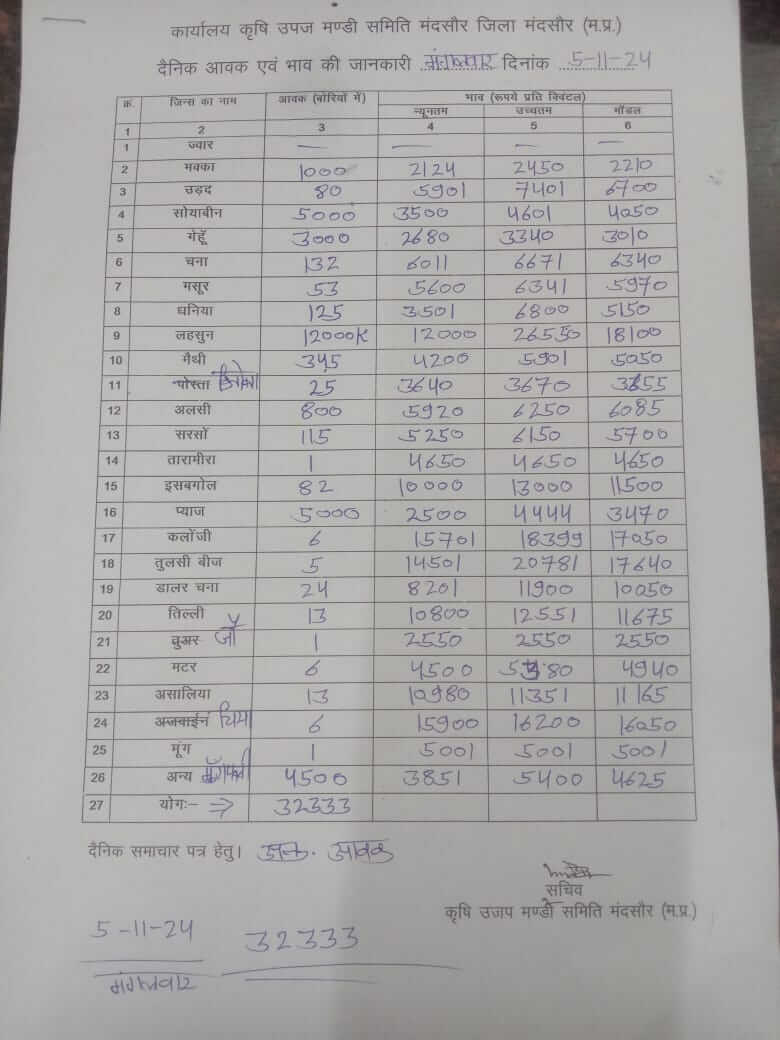 कार्यालय कृषि उपज मण्डी समिति मंदसौर जिला मंदसौर (म.प्र.)
दैनिक आवक एवं भाव की जानकारी मंगलवार दिनांक 5-11-24
क्र. जिन्स का नाम आवक (बोरियों में) भाव (रूपये प्रति क्विंटल)
न्यूनतम उच्चतम मॉडल
1 2 3 4 5 6
1 ज्वार — — — —
2 मक्का 1000 2124 2450 2210
3 उड़द 80 5901 7401 6700
4 सोयाबीन 5000 3500 4601 4050
5 गेहूँ 3000 2680 3340 3010
6 चना 132 6011 6671 6340
7 मसूर 53 5600 6341 5970
8 धनिया 125 3501 6800 5150
9 लहसुन 12000K 12000 26550 18100
10 मैथी 345 4200 5901 5050
11 पोस्ता 25 3640 3670 3655
12 अलसी 800 5920 6250 6085
13 सरसों 115 5250 6150 5700
14 तारामीरा 1 4650 4650 4650
15 इसबगोल 82 10000 13000 11500
16 प्याज 5000 2500 4444 3470
17 कलोंजी 6 15701 18399 17050
18 तुलसी बीज 5 14501 20781 17640
19 डालर चना 24 8201 11900 10050
20 तिल्ली 13 10800 12551 11675
21 जौ 1 2550 2550 2550
22 मटर 6 4500 5380 4940
23 असालिया 13 10980 11351 11165
24 अजवाईन चिया 6 15900 16200 16050
25 मूंग 1 5001 5001 5001
26 अन्य मूँगफली 4500 3851 5400 4625
27 योगः- → 32333
दैनिक समाचार पत्र हेतु। आवक
सचिव
कृषि उजप मण्डी समिति मंदसौर (म.प्र.)
5-11-24 32333
मंगलवार